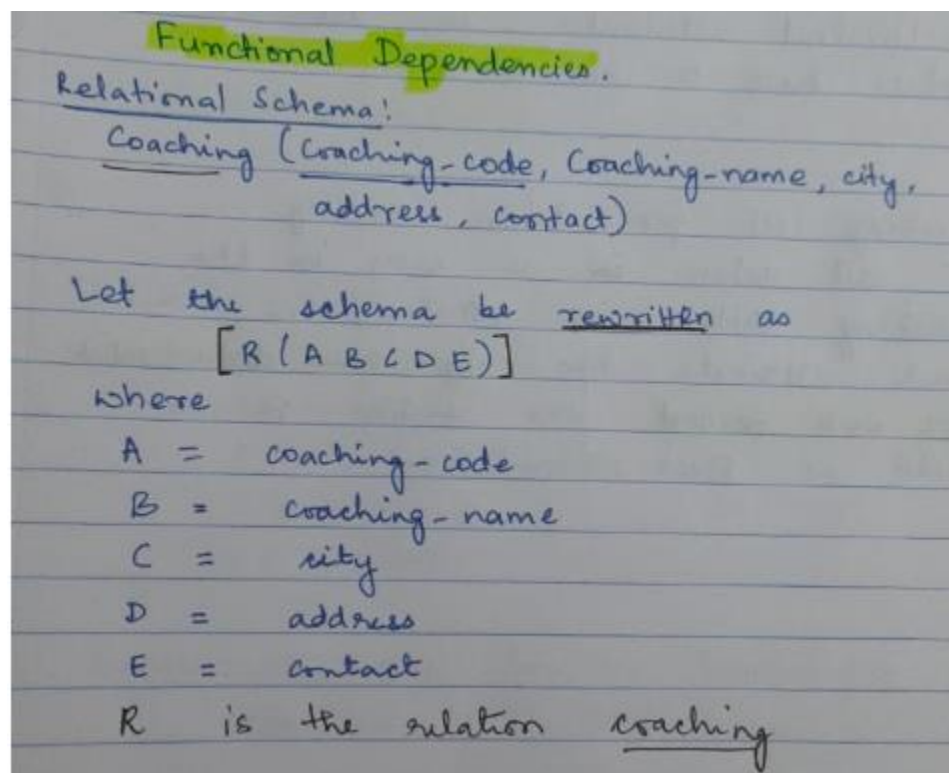 Functional Dependencies.
Relational Schema:
Coaching (Coaching-code, Coaching-name, city,
address, contact)
Let the schema be rewritten as
[R (A B C D E)]
where
A = coaching-code
B = coaching-name
C = city
D = address
E = contact
R is the relation coaching